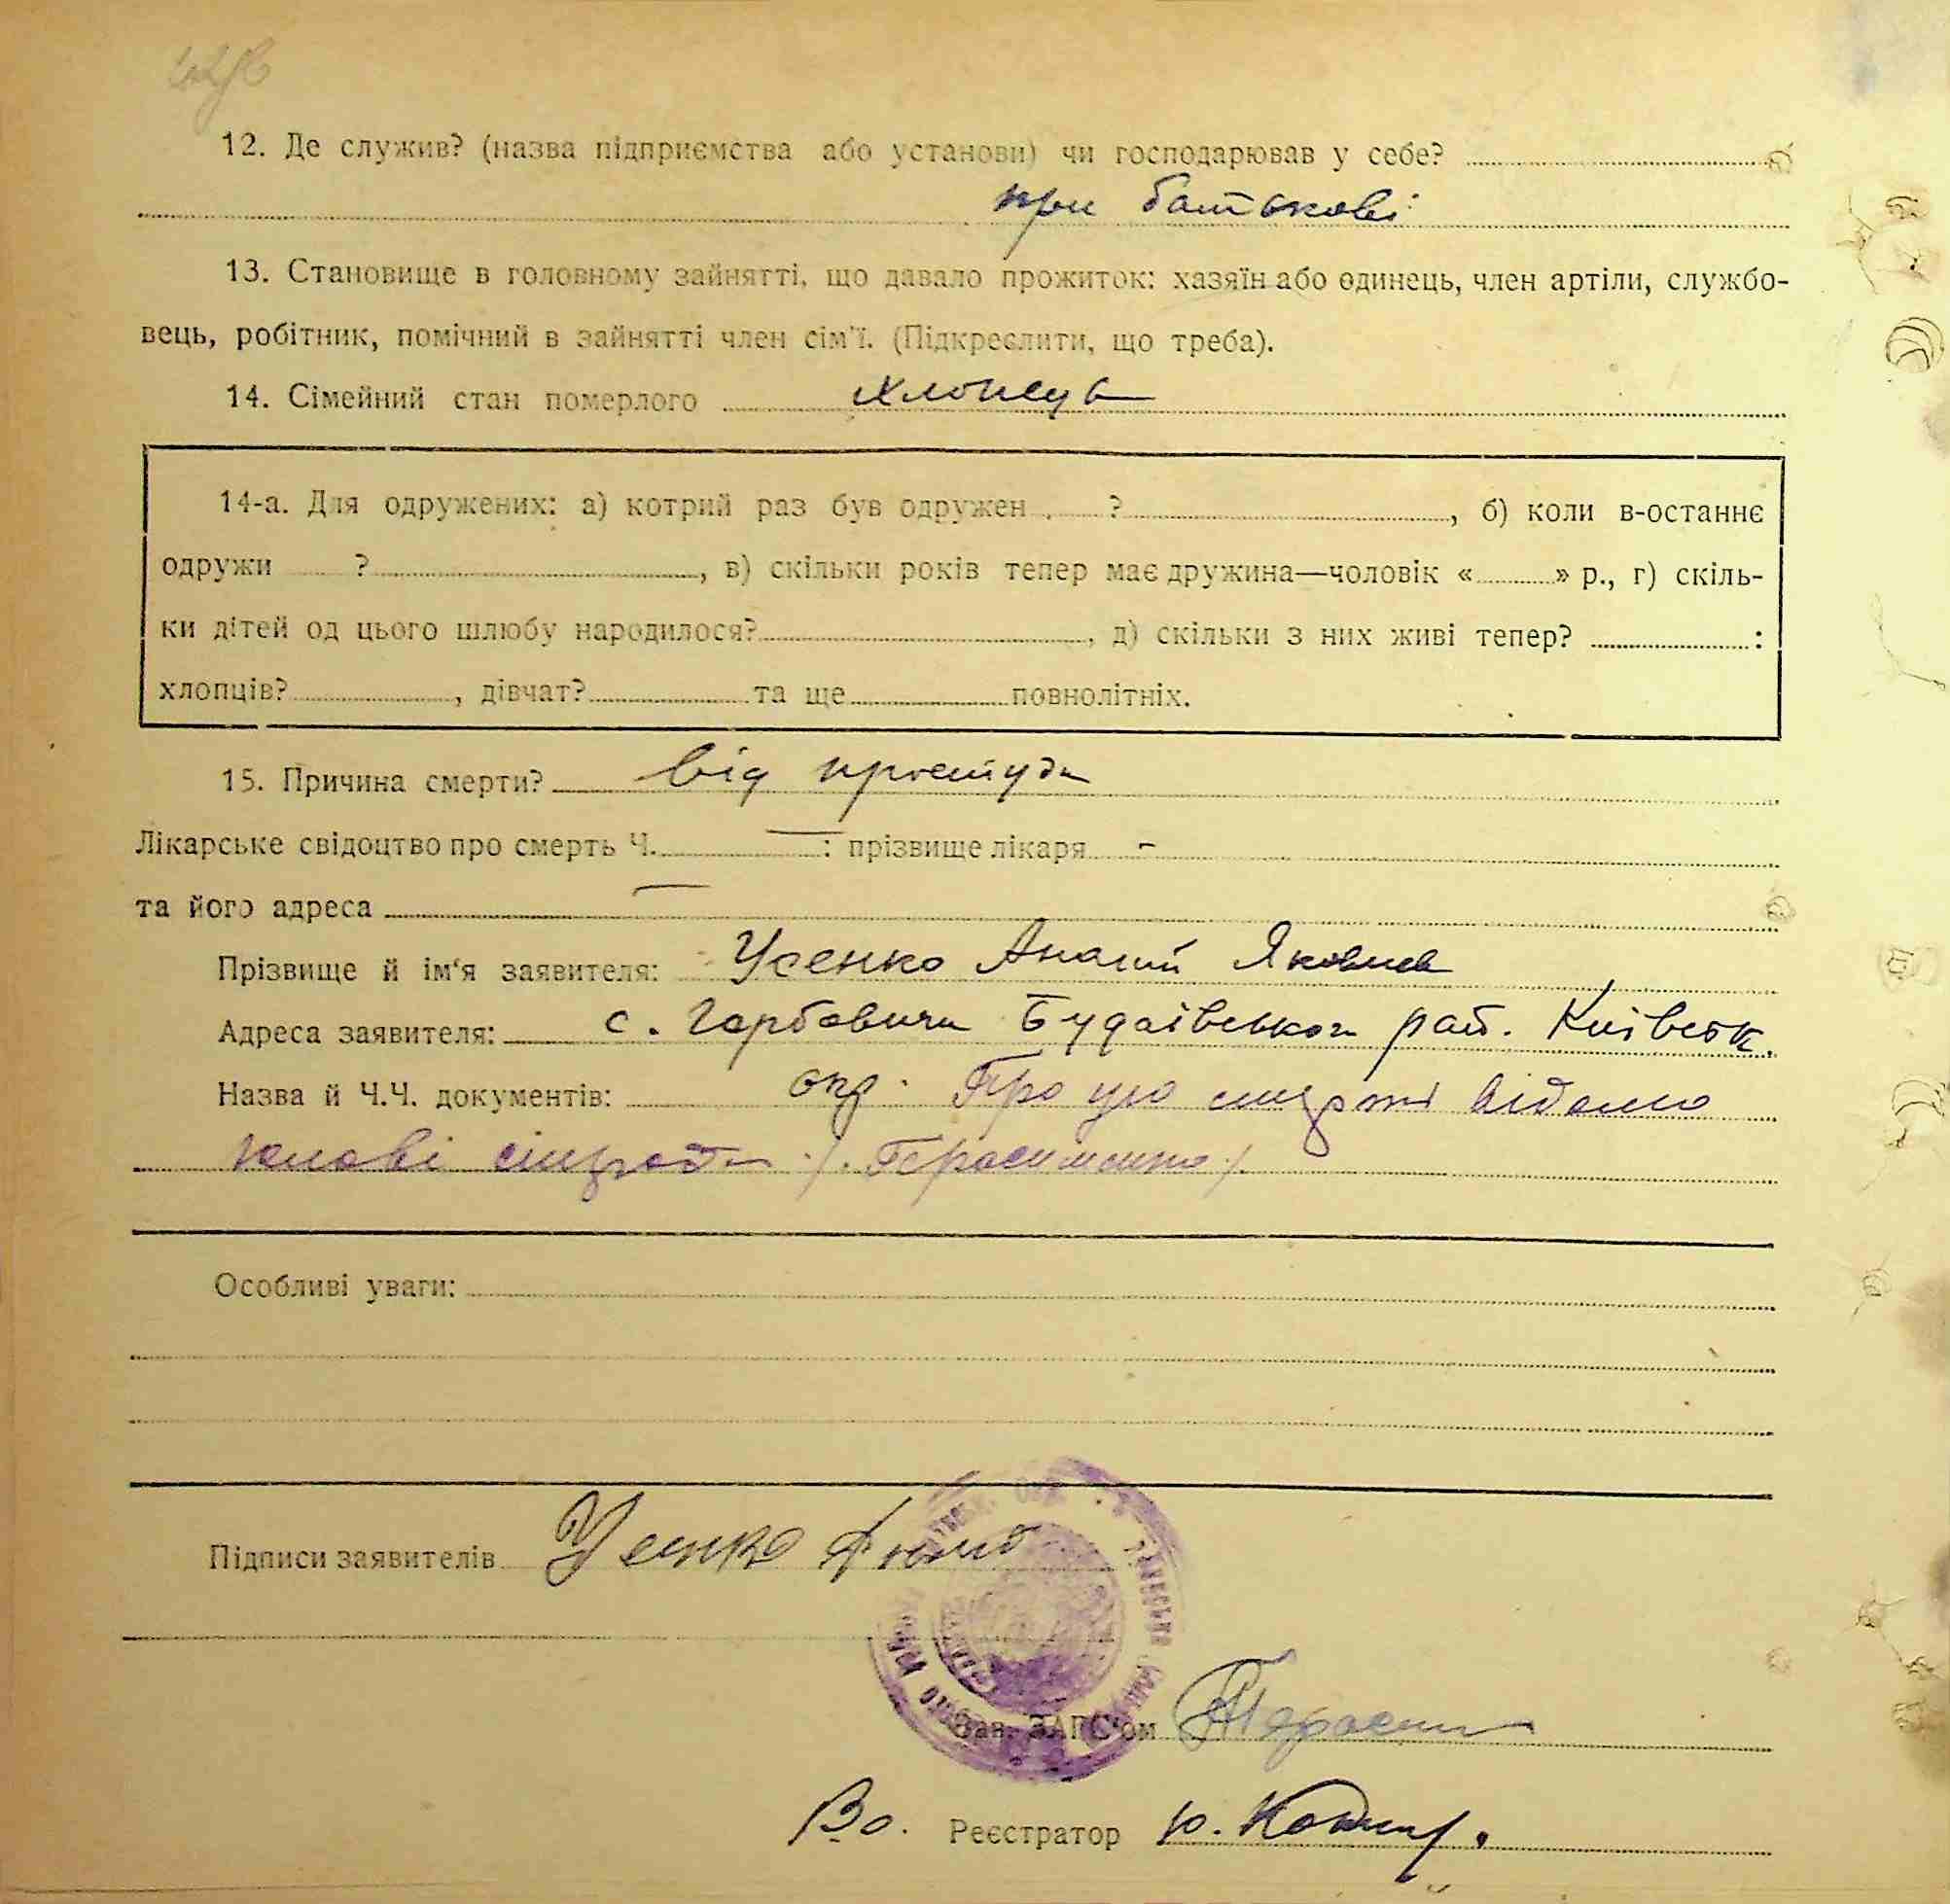 12. Де служив? (назва підприємства або установи) чи господарював у себе?
при батькові
13. Становище в головному зайнятті, що давало прожиток: хазяїн або одинець, член артіли, службо-
вець, робітник, помічний в зайнятті член сім'ї. (Підкреслити, що треба).
14. Сімейний стан померлого хлопець
14-а. Для одружених: а) котрий раз був одружен ? , б) коли в-останнє
одружи ? , в) скільки років тепер має дружина—чоловік « » р., г) скіль-
ки дітей од цього шлюбу народилося? , д) скільки з них живі тепер? :
хлопців? , дівчат? та ще повнолітніх.
15. Причина смерти? від простуди
Лікарське свідоцтво про смерть Ч. — : прізвище лікаря -
та його адреса —
Прізвище й ім'я заявителя: Усенко Яковлев
Адреса заявителя: с. Горбовичи Будаївського рай. Київськ.
Назва й Ч.Ч. документів: Про цю смерть відомо
голові сільради /Герасименко/
Особливі уваги:
Підписи заявителів Усенко
Зав. ЗАГС'ом Герасим
Во. Реєстратор Ю.